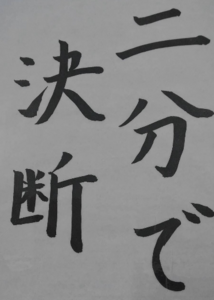 二分で
決断